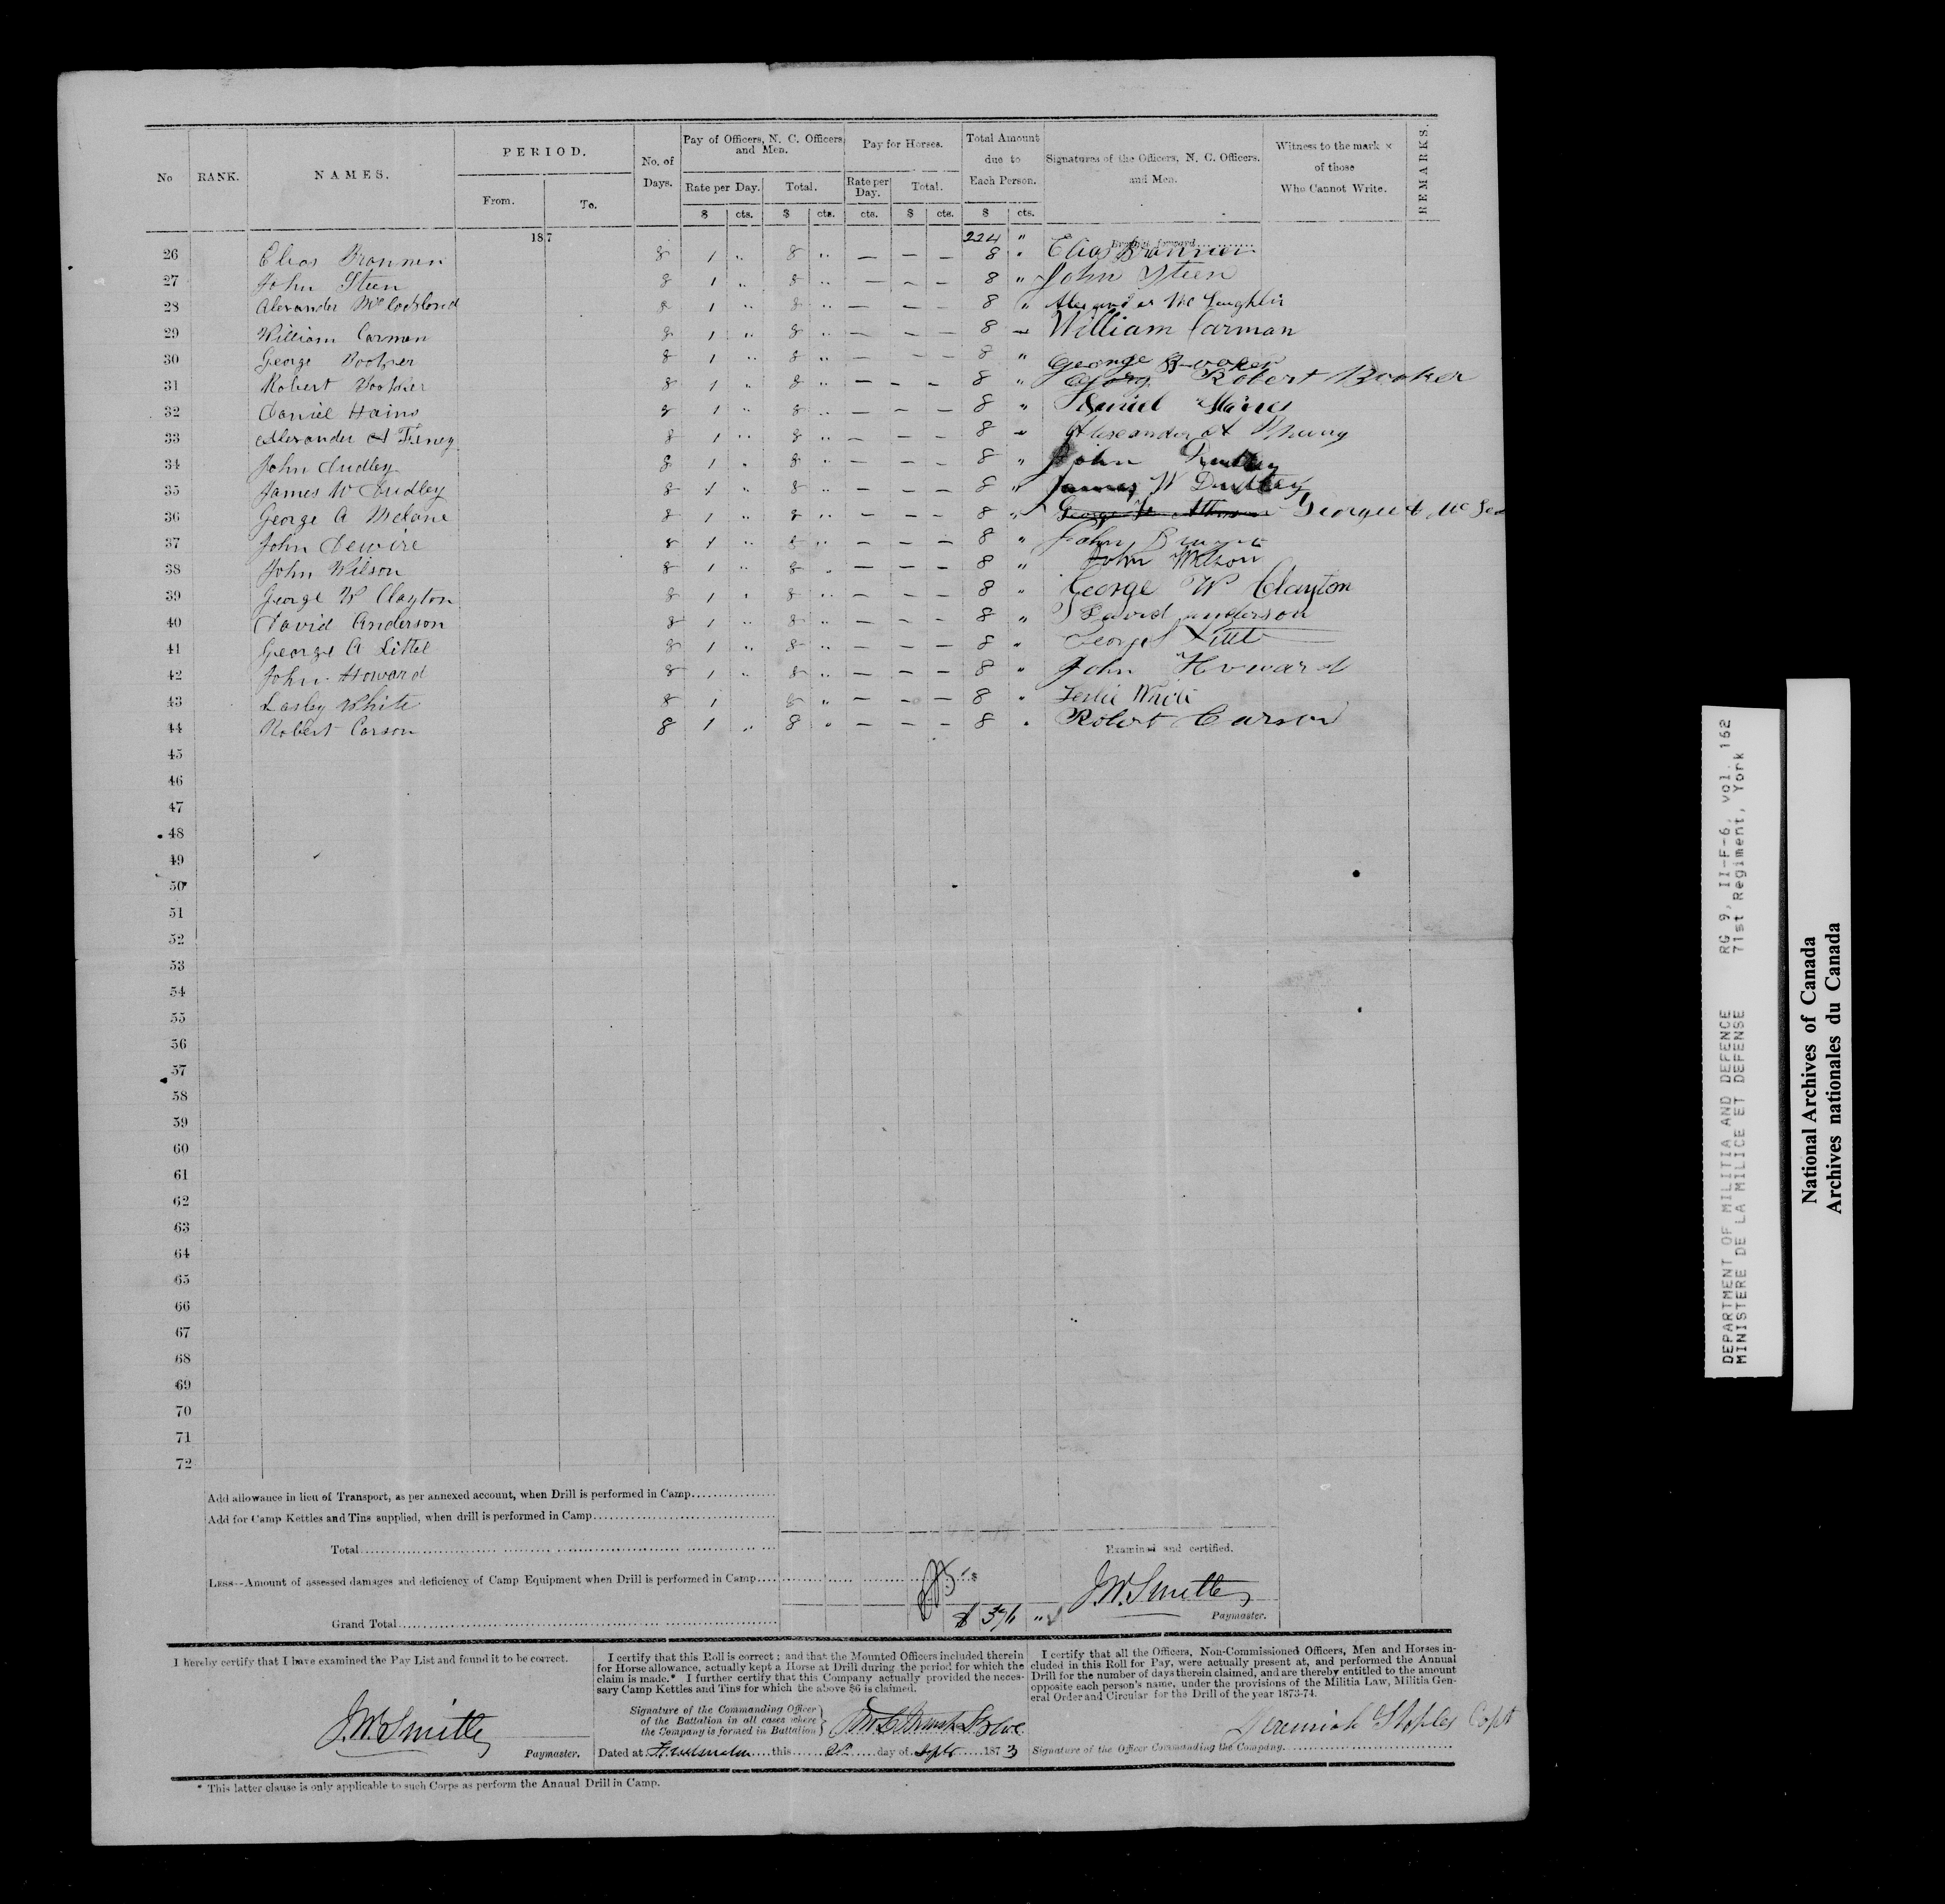 No RANK. NAMES. PERIOD. No. of Days. Pay of Officers, N. C. Officers, and Men. Pay for Horses. Total Amount due to Each Person. Signatures of the Officers, N. C. Officers. and Men. Witness to the mark × of those Who Cannot Write. REMARKS.
From. To. Rate per Day. Total. Rate per Day. Total.
$ cts. $ cts. cts. $ cts. $ cts.
187 224 "
26 Elias Brannen 8 1 " 8 " — — — 8 " Elias Brannen
27 John Steen 8 1 " 8 " — — — 8 " John Steen
28 Alexander 8 1 " 8 " — — — 8 " Alexander Mc Laughlin
29 William Carman 8 1 " 8 " — — — 8 " William Carman
30 George Booker 8 1 " 8 " — — — 8 " George Booker
31 Robert Booker 8 1 " 8 " — — — 8 " Robert Booker
32 Daniel Hains 8 1 " 8 " — — — 8 " Daniel Haines
33 Alexander A 8 1 " 8 " — — — 8 " Alexander A
34 John Dudley 8 1 " 8 " — — — 8 " John Dudley
35 James W Dudley 8 1 " 8 " — — — 8 " James W Dudley
36 George A McLane 8 1 " 8 " — — — 8 "
37 John Dewire 8 1 " 8 " — — — 8 " John
38 John Wilson 8 1 " 8 " — — — 8 " John Wilson
39 George W Clayton 8 1 " 8 " — — — 8 " George W Clayton
40 David Anderson 8 1 " 8 " — — — 8 " David Anderson
41 George A Littel 8 1 " 8 " — — — 8 " George
42 John Howard 8 1 " 8 " — — — 8 " John Howard
43 Lasley White 8 1 8 " — — — 8 " Leslie White
44 Robert Carson 8 1 " 8 " — — — 8 " Robert Carson
45
46
47
48
49
50
51
52
53
54
55
56
57
58
59
60
61
62
63
64
65
66
67
68
69
70
71
72
Add allowance in lieu of Transport, as per annexed account, when Drill is performed in Camp
Add for Camp Kettles and Tins supplied, when drill is performed in Camp
Total
Examined and certified.
Less--Amount of assessed damages and deficiency of Camp Equipment when Drill is performed in Camp
J.W. Smith
Paymaster.
Grand Total $ 376 "
I hereby certify that I have examined the Pay List and found it to be correct.
J.W. Smith
Paymaster.
I certify that this Roll is correct; and that the Mounted Officers included therein
for Horse allowance, actually kept a Horse at Drill during the period for which the
claim is made.* I further certify that this Company actually provided the neces-
sary Camp Kettles and Tins for which the above $6 is claimed.
Signature of the Commanding Officer
of the Battalion in all cases where
the Company is formed in Battalion
Dated at this day of Septr 1873
I certify that all the Officers, Non-Commissioned Officers, Men and Horses in-
cluded in this Roll for Pay, were actually present at, and performed the Annual
Drill for the number of days therein claimed, and are thereby entitled to the amount
opposite each person's name, under the provisions of the Militia Law, Militia Gen-
eral Order and Circular for the Drill of the year 1873-74.
Jeremiah Staples Capt
Signature of the Officer Commanding the Company.
* This latter clause is only applicable to such Corps as perform the Annual Drill in Camp.
DEPARTMENT OF MILITIA AND DEFENCE RG 9, II-F-6, vol. 152
MINISTERE DE LA MILICE ET DEFENSE 71st Regiment, York
National Archives of Canada
Archives nationales du Canada